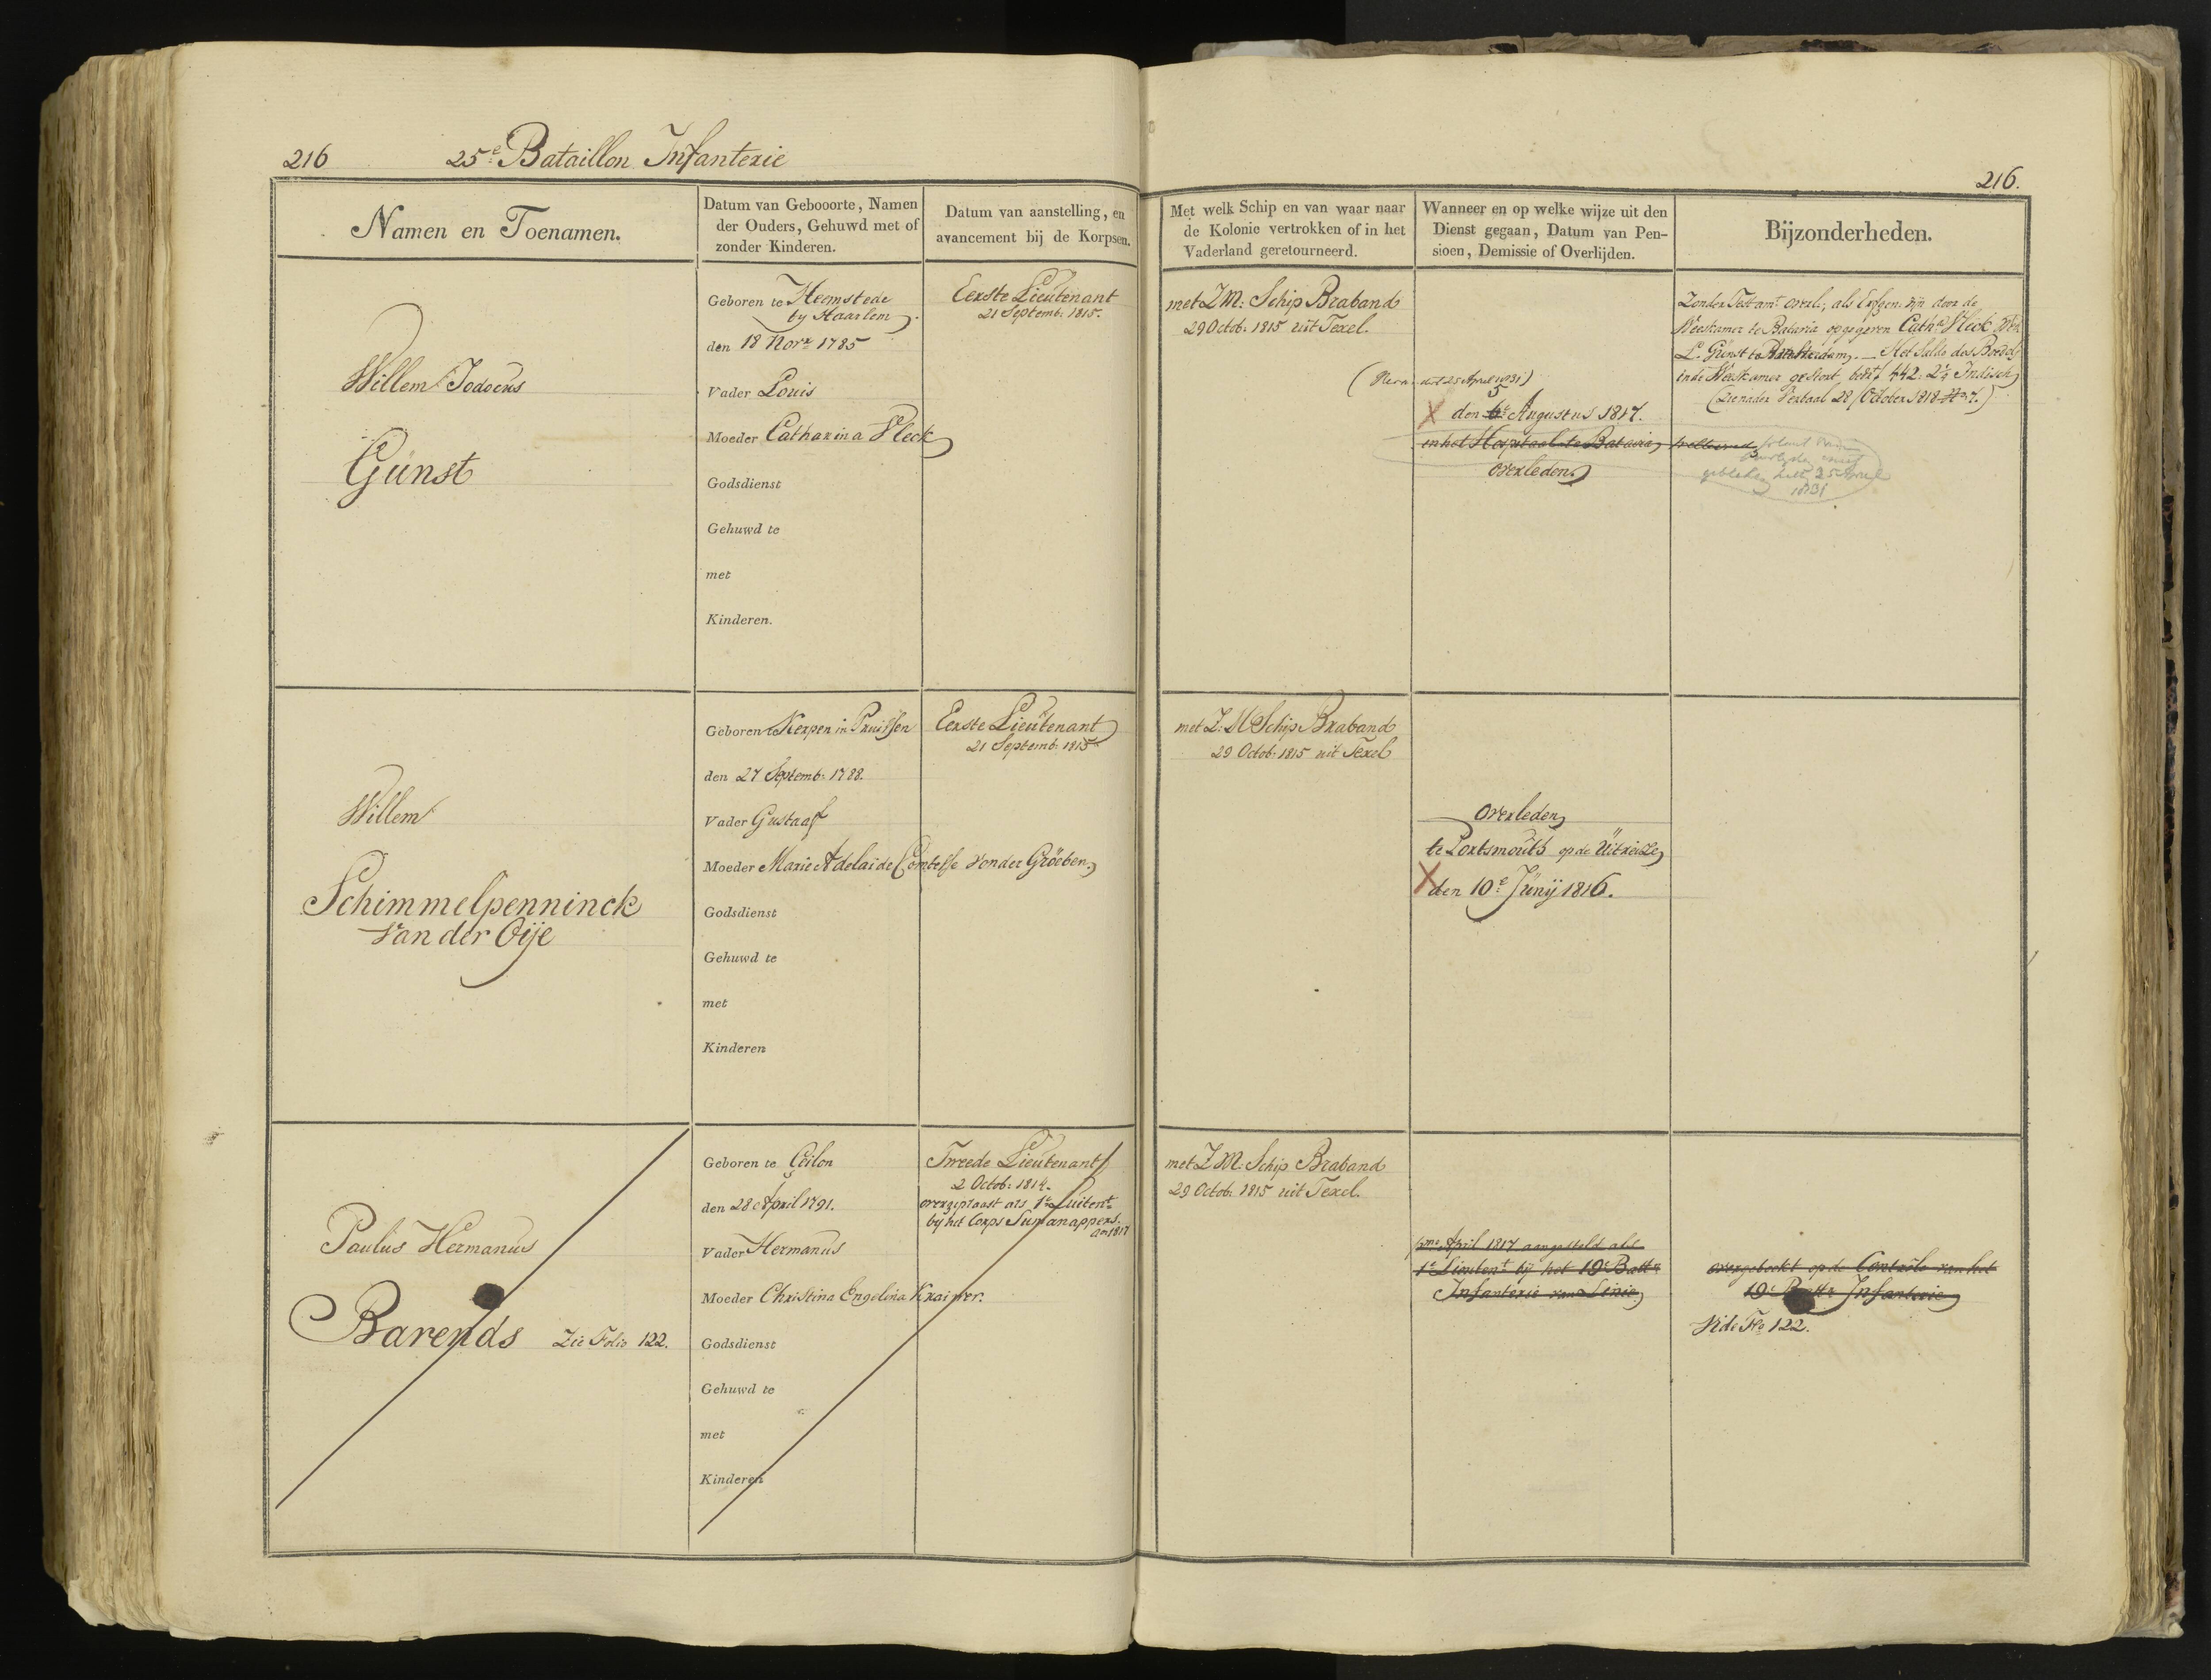 216
25e Bataillon Infanterie
216.
Namen en Toenamen.
Datum van Gebooorte, Namen
der Ouders, Gehuwd met of
zonder Kinderen.
Datum van aanstelling, en
avancement bij de Korpsen.
Met welk Schip en van waar naar
de Kolonie vertrokken of in het
Vaderland geretourneerd.
Wanneer en op welke wijze uit den
Dienst gegaan, Datum van Pen-
sioen, Demissie of Overlijden.
Bijzonderheden.
Willem Jodocus
Gunst
Geboren te Heemstede
by Haarlem
den 18 Novr 1785
Vader Louis
Moeder Catharina Fleck
Godsdienst
Gehuwd te
met
Kinderen.
Eerste Lieutenant
21 Septemb: 1815.
met Z M: Schip Braband
29 Octob: 1815 uit Texel.
25 April 1831)
5
den 6e Augustus 1817.
in het Hospitaal te Batavia
overleden
Zonder Testamt overl; als Erfgen: zijn door de
Weeskamer te Batavia opgegeven Catha Fleck Wed
L. Gunst te Amsterdam. — Het Saldo des Boedels
in de Weeskamer gestort bedt f 442: 2¼ Indisch
(Zie nader Verbaal 28 October 1818 No 7.)
25 April
1831
Willem
Schimmelpenninck
van der Oije
Geboren te Kerpen in Pruissen
den 27 Septemb: 1788.
Vader Gustaaf
Moeder Marie Adelaide Comtesse von der Gröeben
Godsdienst
Gehuwd te
met
Kinderen
Eerste Lieutenant
21 Septemb: 1815
met Z: M Schip Braband
29 Octob: 1815 uit Texel
Overleden
te Portsmouth op de Uitreize
den 10e Junij 1816.
Paulus Hermanus
Barends Zie Folio 122.
Geboren te Ceilon
den 28 April 1791.
Vader Hermanus
Moeder Christina Engelina Kraijver.
Godsdienst
Gehuwd te
met
Kinderen
Tweede Lieutenant
2 Octob: 1814.
overgeplaast als 1e Luitent
by het Corps Sumanappers.
Ao 1817
met Z M: Schip Braband
29 Octob: 1815 uit Texel.
pmo April 1817 aangesteld als
1e Lieutent bij het 19e Battn
Infanterie van Linie
overgeboekt op de Controle van het
19e Battn Infanterie
Vide Fo 122.